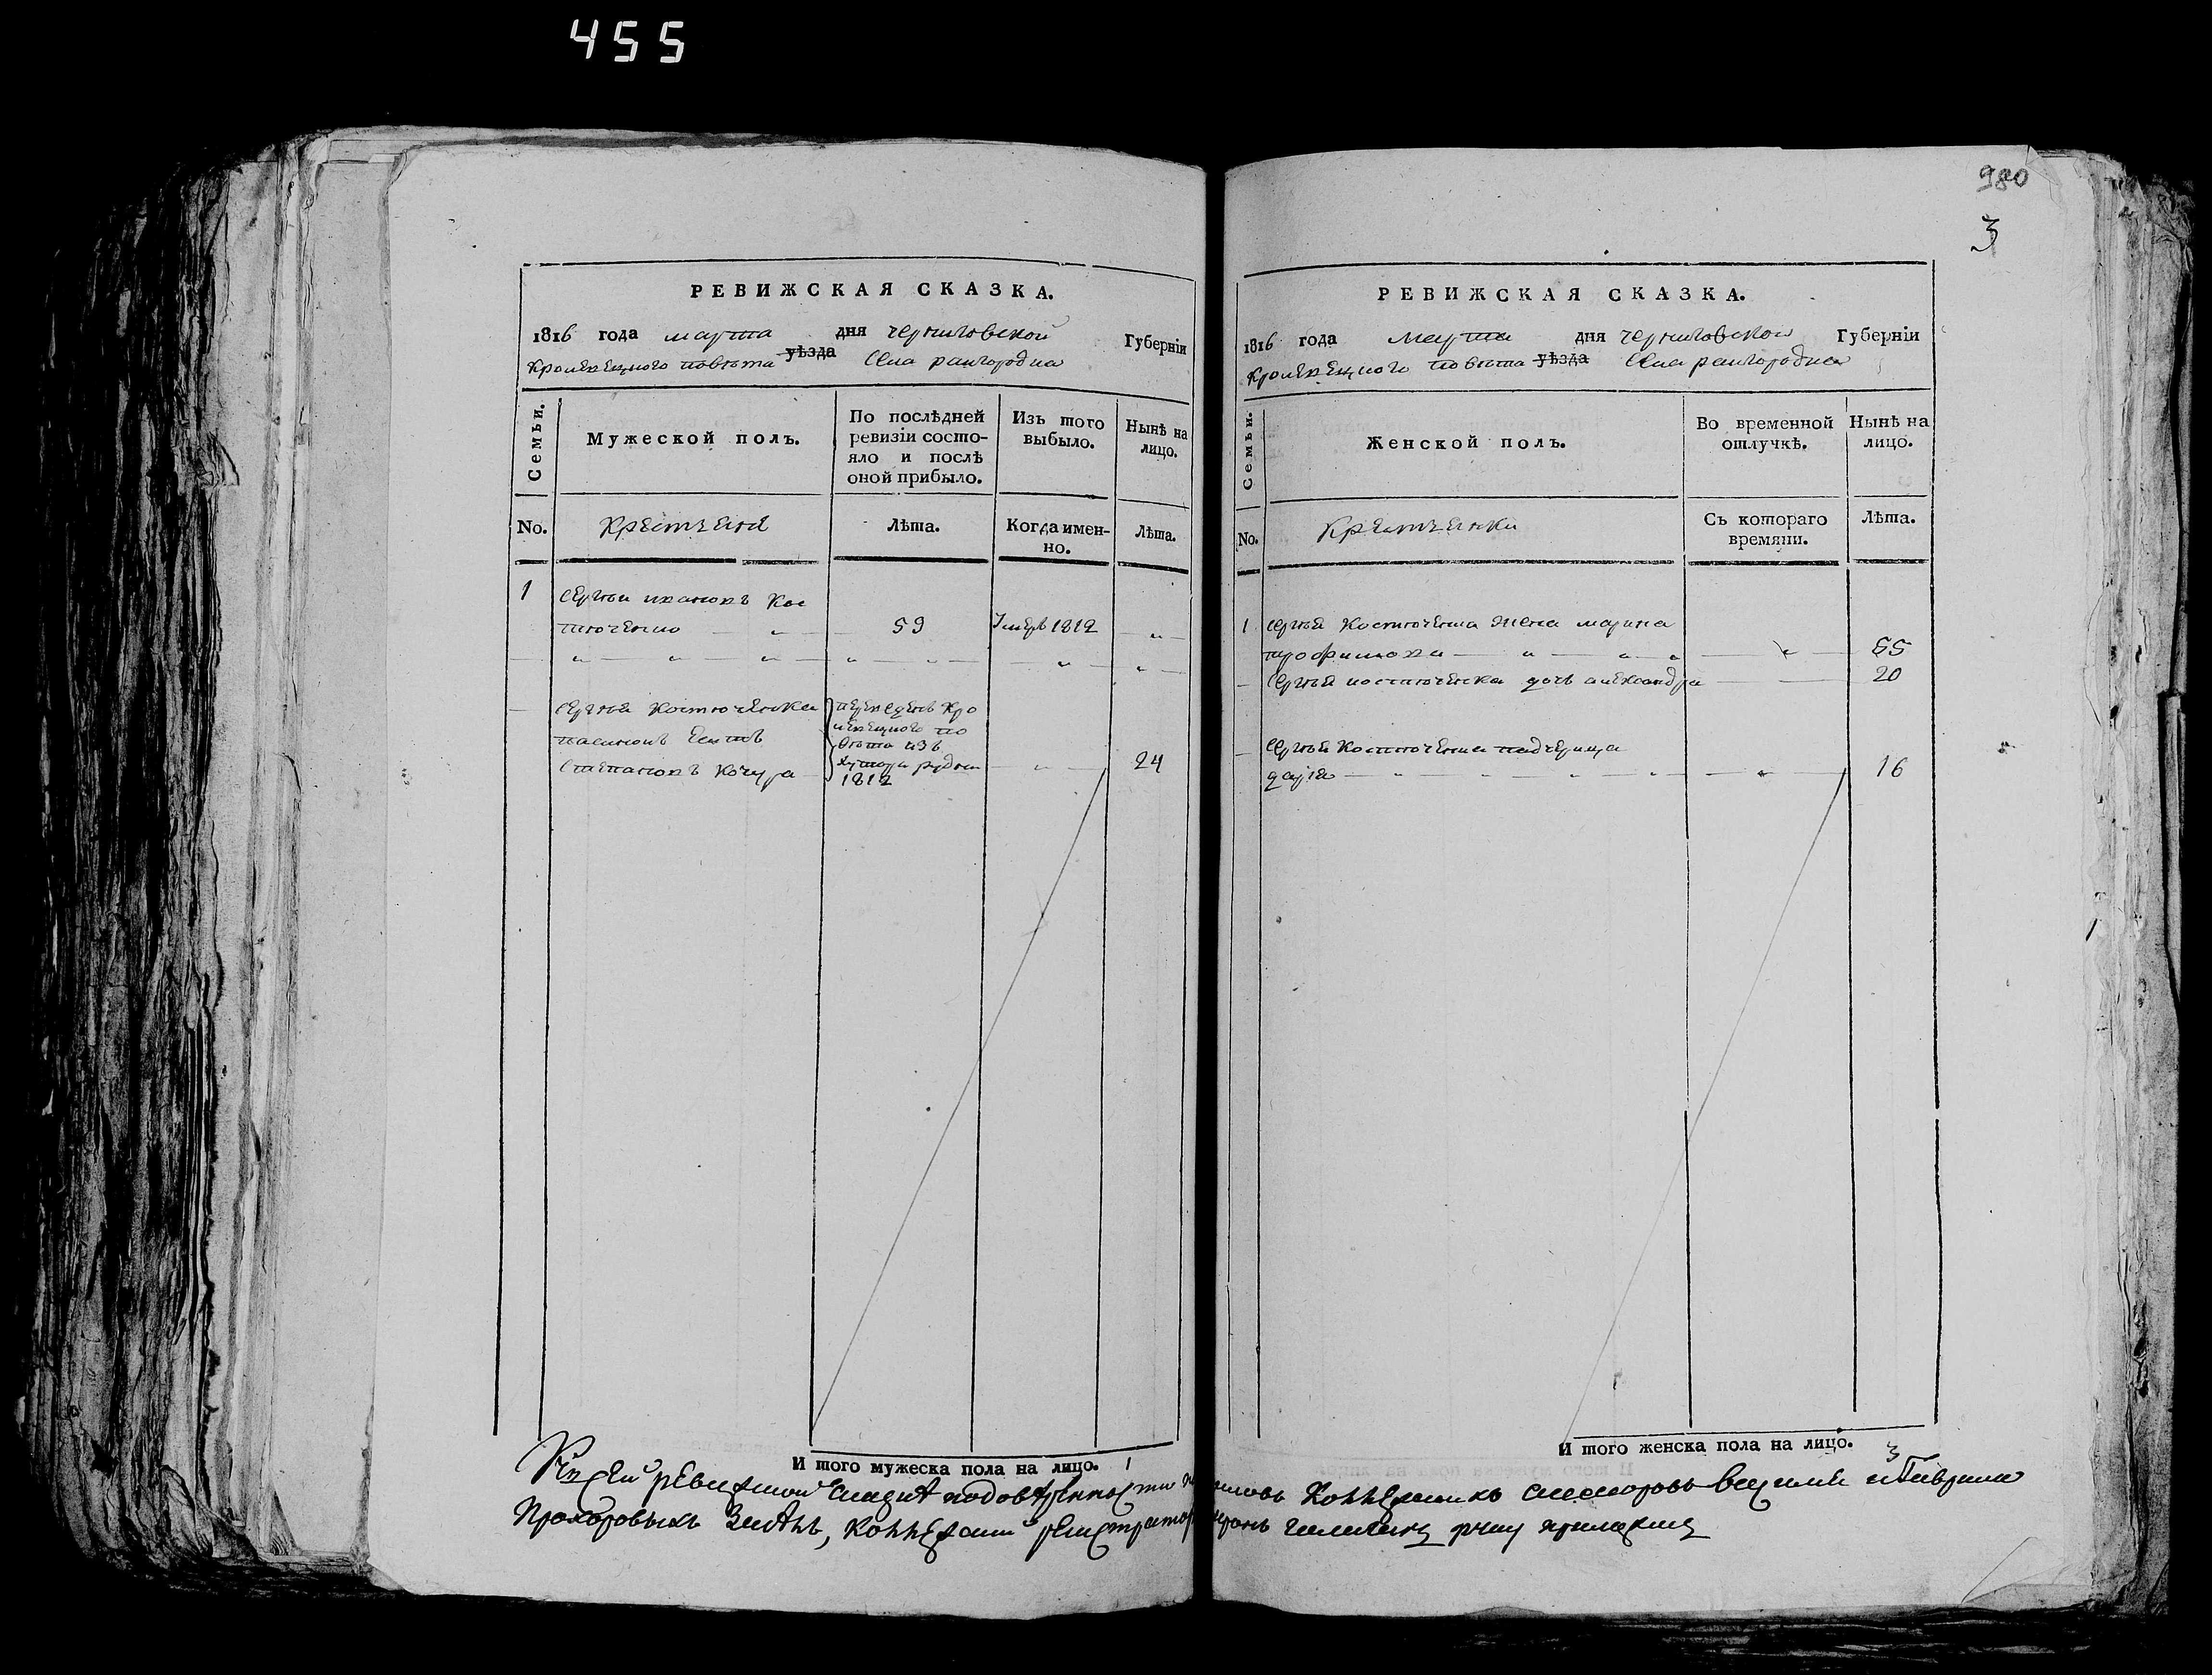 455
980
3
РЕВИЖСКАЯ СКАЗКА.
1816 года марта дня черниговской Губерніи
Кролевецкого повѣта уѣзда села райгородка
Семьи.
Мужеской полъ.
По послѣдней ревизіи состо-
яло и послѣ
оной прибыло.
Изъ того
выбыло.
Нынѣ на
лицо.
No.
Крестъяне
Лѣта.
Когда имен-
но.
Лѣта.
1 сергѣй ивановъ Кос
тюченко 59 Умеръ 1812
Сергѣя Костюченка
пасинокъ
степановъ Кочура
переведенъ Кро
левецкого по
вѣта изъ
хутора рудни
1812
24
И того мужеска пола на лицо. 1
РЕВИЖСКАЯ СКАЗКА.
1816 года марта дня черниговской Губерніи
Кролевецкого повѣта уѣзда села райгородка
Семьи.
Женской полъ.
Во временной
отлучкѣ.
Нынѣ на
лицо.
No.
Крестъянки
Съ котораго
времяни.
Лѣта.
1 сергѣя Костюченка жена марина
трофимова 55
сергѣя костюченка дочь александра 20
сергѣя Костюченка падчерица
дарія 16
И того женска пола на лицо. 3
К сей ревижской
Прохоровыхъ руку приложилъ